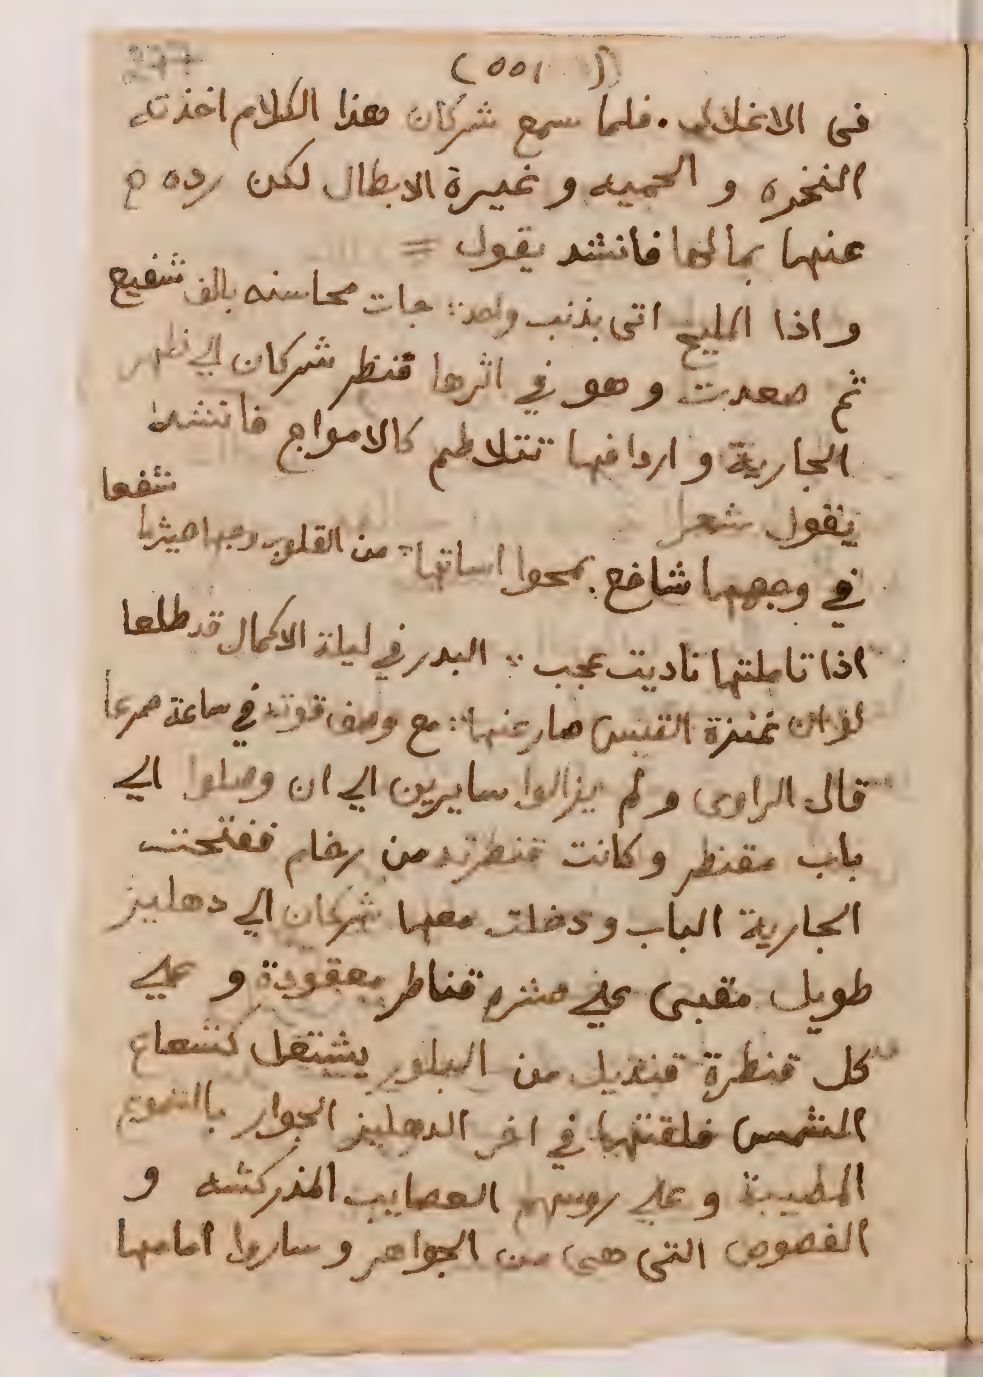 277
(٥٥١)
فى الاغلال . فلما سمع شركان هذا الكلام اخذته
النخوه و الحميه و غيرة الابطال لكن رده م
عنها جمالها فانشد يقول =
و اذا المليح اتى بذنب واحد : جات محاسنه بالف شفيع
ثم صعدت و هو في اثرها فنظر شركان الي ظهر
الجارية و اردافها تتلاطم كالامواج فانشد
يقول شعرا
في وجهها شافع يمحوا اساتها : من القلوب وجها حيثما شفعا
اذا تاملتها ناديت عجب : البدر في ليلة الاكمال قد طلعا
لو ان صارعنها : مع وصف قوته في ساعة صرعا
قال الراوى و لم يزالوا سايرين الي ان وصلوا الي
باب مقنطر و كانت قنطرته من رخام ففتحت
الجارية الباب و دخلت معها شركان الي دهليز
طويل مقبى علي عشره قناطر معقودة و علي
كل قنطرة قنديل من البلور يشتعل كشعاع
الشمس فلقنتها في اخر الدهليز الجوار بالشموع
المطيبة و علي روسهم العصايب المزركشه و
الفصوص التى هى من الجواهر و ساروا امامها